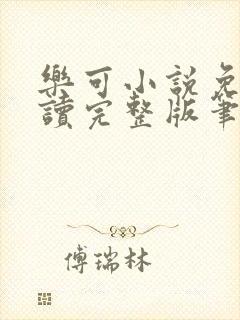 樂可小説免
讀完整版筆
傅瑞林